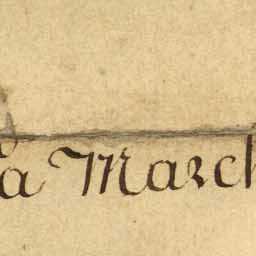 a March